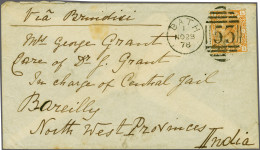 Viâ Brindisi
BATH
NO 29
76
53
Mrs George Grant
Care of Dr. G. Grant
In charge of Central Jail
Bareilly
North West Provinces
India